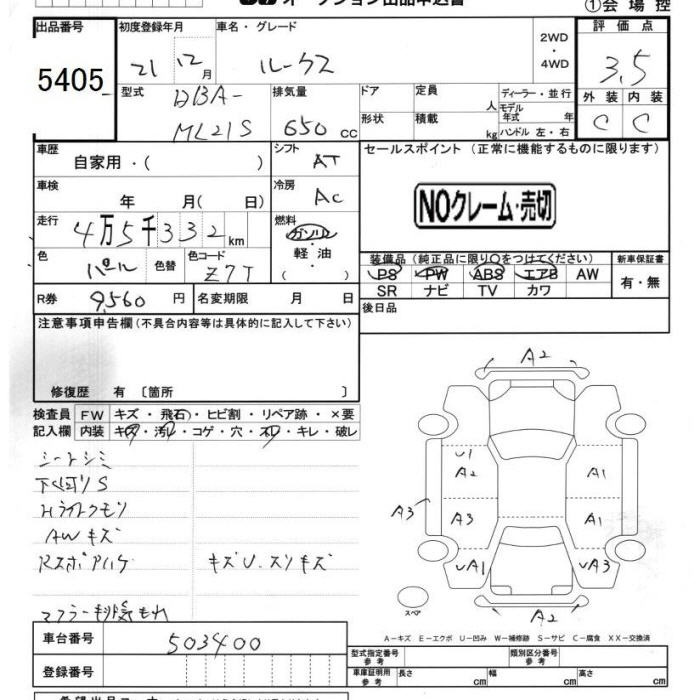 オークション出品申込書
①会場控
出品番号
5405
初度登録年月
21 12月
車名・グレード
ルークス
2WD・4WD
評価点
3.5
型式
DBA-ML21S
排気量
650cc
ドア
定員
人
ディーラー・並行
モデル年式 年
外装 内装
C C
形状
積載
kg
ハンドル 左・右
車歴
自家用・( )
シフト
AT
セールスポイント (正常に機能するものに限ります)
NOクレーム・売切
車検
年 月( 日)
冷房
AC
走行
4万5千332km
燃料
ガソリン・軽油
( )
色
パール
色替
色コード
Z7T
装備品(純正品に限り○をつけてください)
新車保証書
PS PW ABS エアB AW
有・無
SR ナビ TV カワ
R券
9,560円
名変期限 月 日
後日品
注意事項申告欄(不具合内容等は具体的に記入して下さい)
修復歴 有〔箇所 〕
検査員記入欄
FW キズ・飛石・ヒビ割・リペア跡・×要
内装 キズ・汚レ・コゲ・穴・スレ・キレ・破レ
シートシミ
下廻りS
Hライトクモリ
AWキズ
Rスポアハゲ キズU.スリキズ
マフラー排気もれ
A2
U1
A2 A1
A3
A3 A1
UA1 UA3
スペア
A2
A-キズ E-エクボ U-凹み W-補修跡 S-サビ C-腐食 XX-交換済
車台番号
503400
登録番号
型式指定番号 参考
類別区分番号 参考
車庫証明用 参考
長さ cm 幅 cm 高さ cm